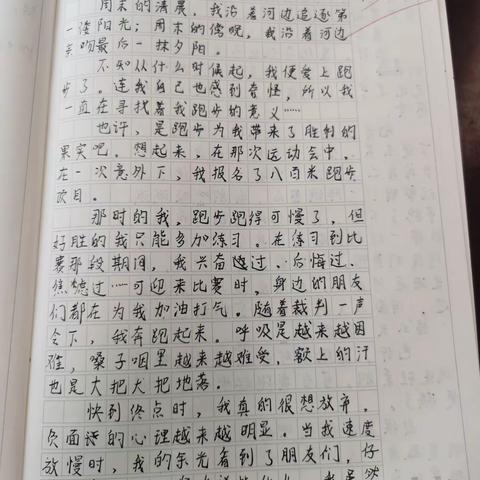 周末的清晨，我沿着河边追逐第
一缕阳光；周末的傍晚，我沿着河边
亲吻最后一抹夕阳。
不知从什么时候起，我便爱上跑
步了。连我自己也感到奇怪，所以我
一直在寻找着我跑步的意义……
也许，是跑步为我带来了胜利的
果实吧。想起来，在那次运动会中，
在一次意外下，我报名了八百米跑步
项目。
那时的我，跑步跑得可慢了，但
好胜的我只能多加练习。在练习到比
赛那段期间，我兴奋过、后悔过、
焦虑过……可迎来比赛时，身边的朋友
们都在为我加油打气。随着裁判一声
令下，我奔跑起来。呼吸是越来越困
难，嗓子咽里越来越难受，额上的汗
也是大把大把地落。
快到终点时，我真的很想放弃，
负面话的心理越来越明显。当我速度
放慢时，我的余光看到了朋友们，好